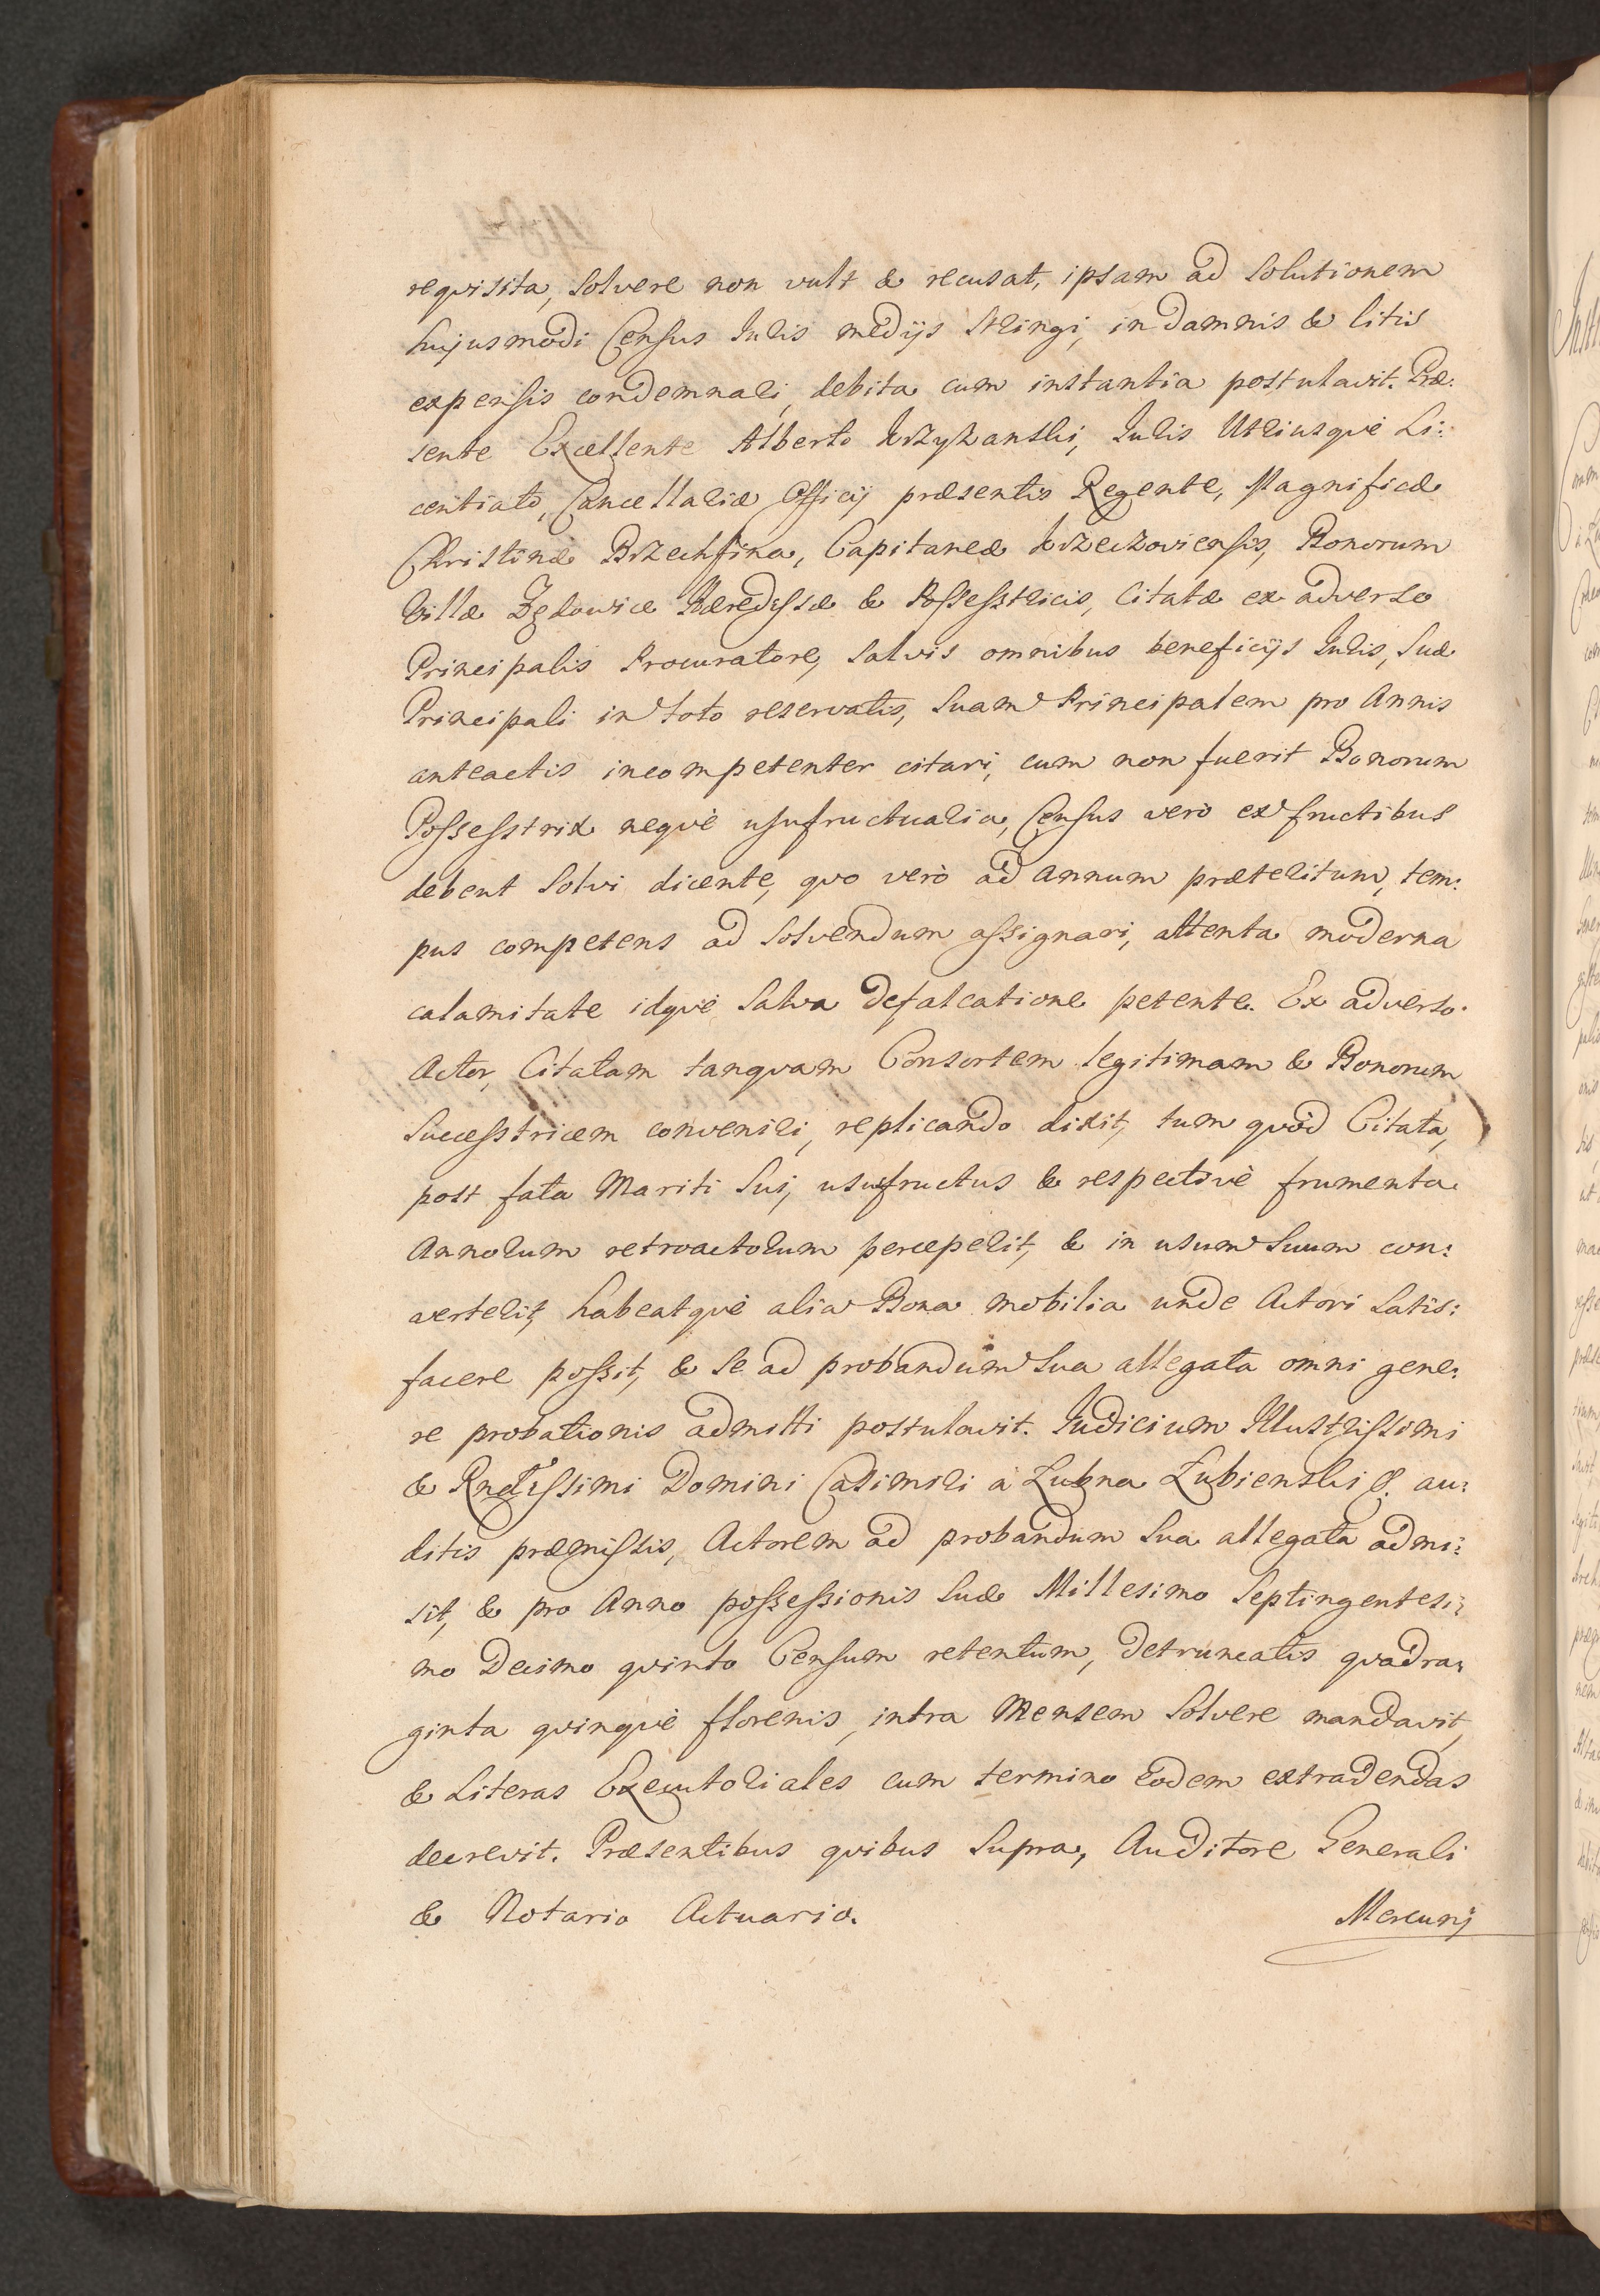 requisita, solvere non vult & recusat, ipsam ad solutionem
hujusmodi Census Juris medijs stringi, in damnis & litis
expensis condemnari, debita cum instantia postulavit. Præ:
sente Excellente Alberto Krzyżanski, Juris Utriusquè Li:
centiato, Cancellariæ Officij præsentis Regente, Magnificæ
Christinæ Brzechfina, Capitaneæ Krzeczoviensis, Bonorum
Villæ Zędowice Hæredissæ & Possesstricis, Citatæ ex adverso
Principalis Procuratore, salvis omnibus beneficijs Juris, Suæ
Principali in toto reservatis, Suam Principalem pro Annis
anteactis incompetenter citari, cum non fuerit Bonorum
Possesstrix nequè usufructuaria, Census verò ex fructibus
debent Solvi dicente, quo verò ad annum præteritum, tem:
pus competens ad Solvendum assignari, attenta moderna
calamitate idquè Salva defalcatione petente. Ex adverso.
Actor, Citatam tanquam Consortem legitimam & Bonorum
Successtricem conveniri, replicando dixit, tum quòd Citata,
post fata Mariti Sui, usufructus & respectivè frumenta
Annorum retroactorum perceperit, & in usum Suum con:
verterit, habeatquè alia Bona mobilia unde Actori Satis:
facere possit, & Se ad probandum Sua allegata omni gene:
re probationis admitti postulavit. Judicium Illustrissimi
& Rndissimi Domini Casimiri à Łubna Łubienski &. au:
ditis præmissis, Actorem ad probandum Sua allegata admi:
sit, & pro Anno possessionis Suæ Millesimo Septingentesi:
mo Decimo quinto Censum retentum, detruncatis quadra:
ginta quinquè florenis, intra Mensem Solvere mandavit,
& Literas Executoriales cum termino eodem extradendas
decrevit. Præsentibus quibus Supra, Auditore Generali
& Notario Actuario.
Mercurij